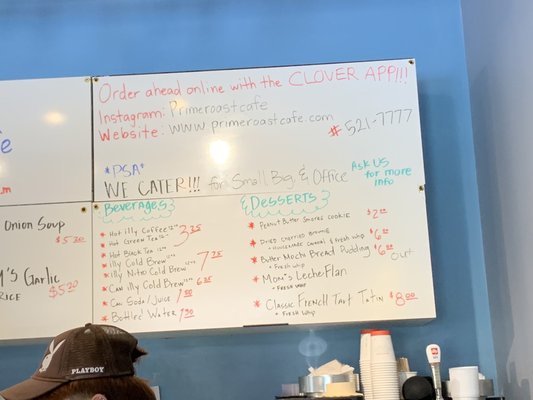 Order ahead online with the CLOVER APP!!!
Instagram: Primeroastcafe
Website: www.primeroastcafe.com
# 521-7777
*PSA*
WE CATER!!! for Small, Big, & Office
Ask US
for more
info
Beverages
* Hot illy Coffee 12oz
* Hot Green Tea 12oz
3.25
* Hot Black Tea 12oz
* illy Cold Brew
* illy Nitro Cold Brew
7.25
* Can illy Cold Brew 6.25
* Can Soda/Juice 1.50
* Bottled Water 1.50
Desserts
* Peanut Butter Smores Cookie $2.00
* Dried Cherries Brownie $6.00
* Housemade Caramel & Fresh Whip
* Butter Mochi Bread Pudding $6.00
Out
* Fresh Whip
* Mom's Leche Flan
* Fresh Whip
* Classic French Tart Tatin $8.00
* Fresh Whip
Onion Soup
$5.50
's Garlic
Rice $5.50
PLAYBOY